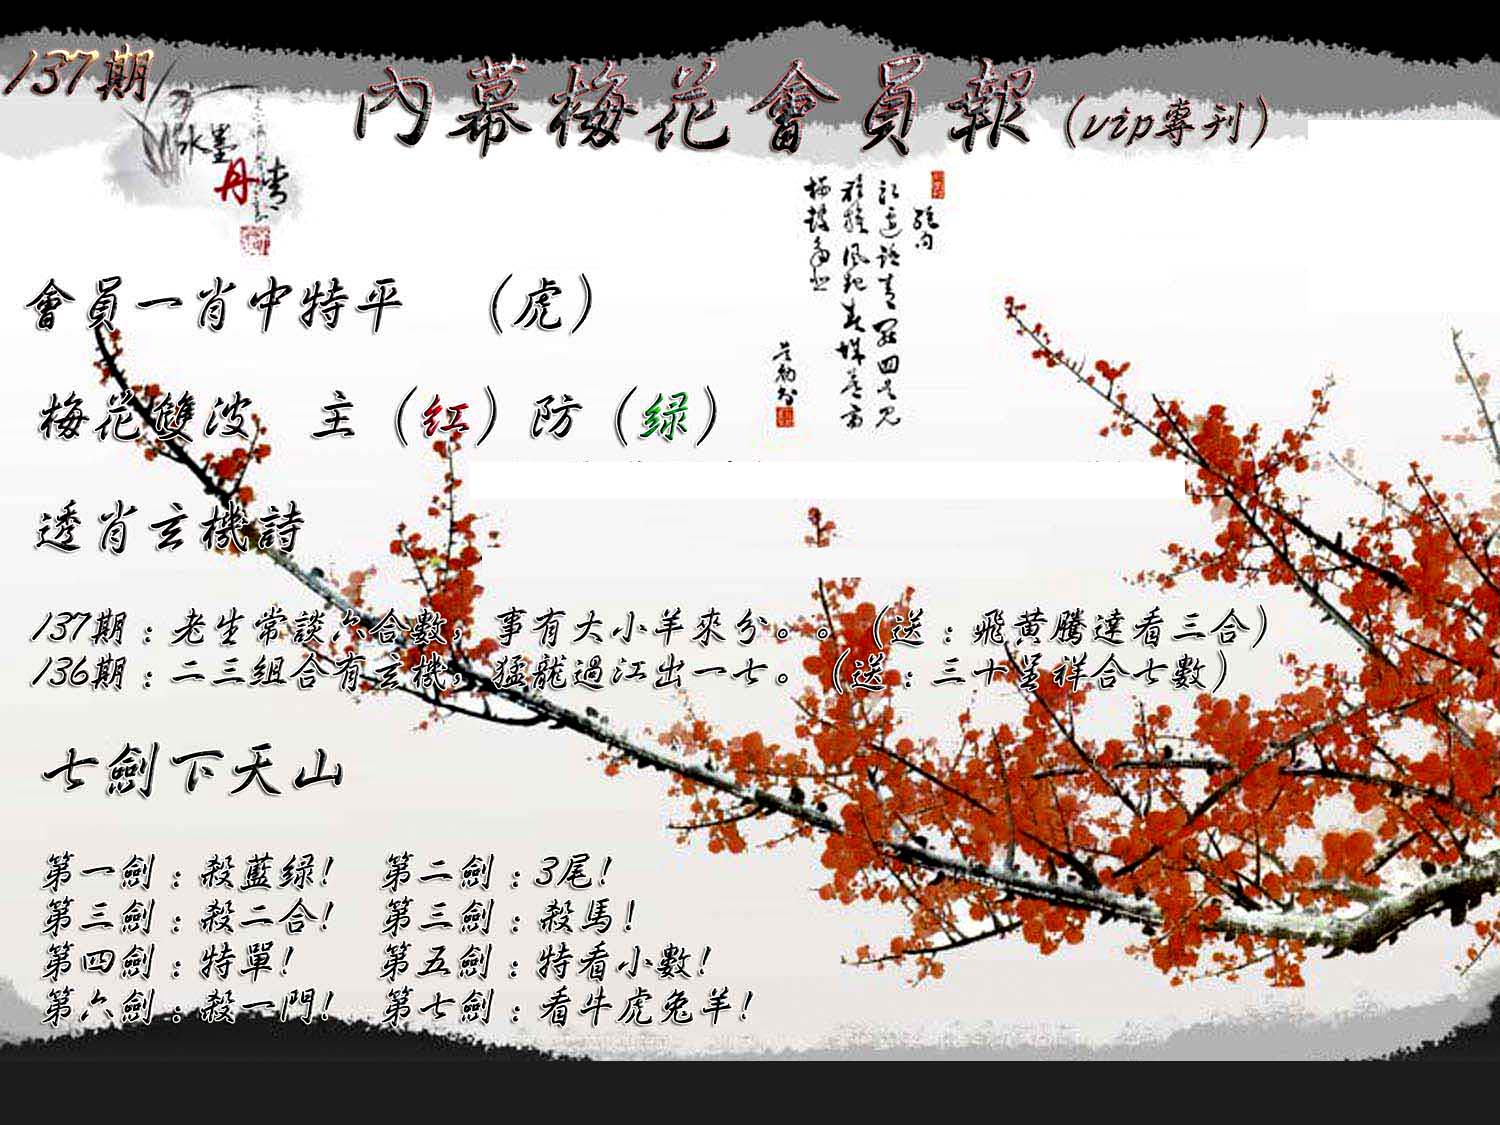 137期
內幕梅花會員報（vip專刊）
水墨
丹
絕句
會員一肖中特平 （虎）
梅花雙波 主（红）防（绿）
透肖玄機詩
137期：老生常談六合數，事有大小羊來分。。（送：飛黄騰達看三合）
136期：二三組合有玄機，猛龍過江出一七。（送：三十呈祥合七數）
七劍下天山
第一劍：殺藍绿！ 第二劍：3尾！
第三劍：殺二合！ 第三劍：殺馬！
第四劍：特單！ 第五劍：特看小數！
第六劍：殺一門！ 第七劍：看牛虎兔羊！